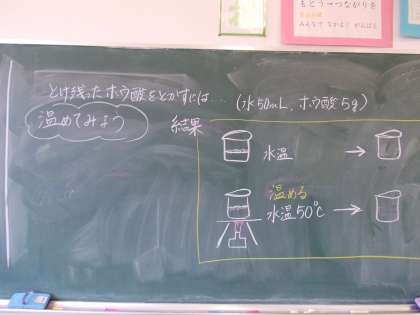 もとう つながりを
みんなで なかよく がんばる
とけ残ったホウ酸をとかすには… (水50mL、ホウ酸5g)
温めてみよう
結果
水温 →
温める
水温50℃ →